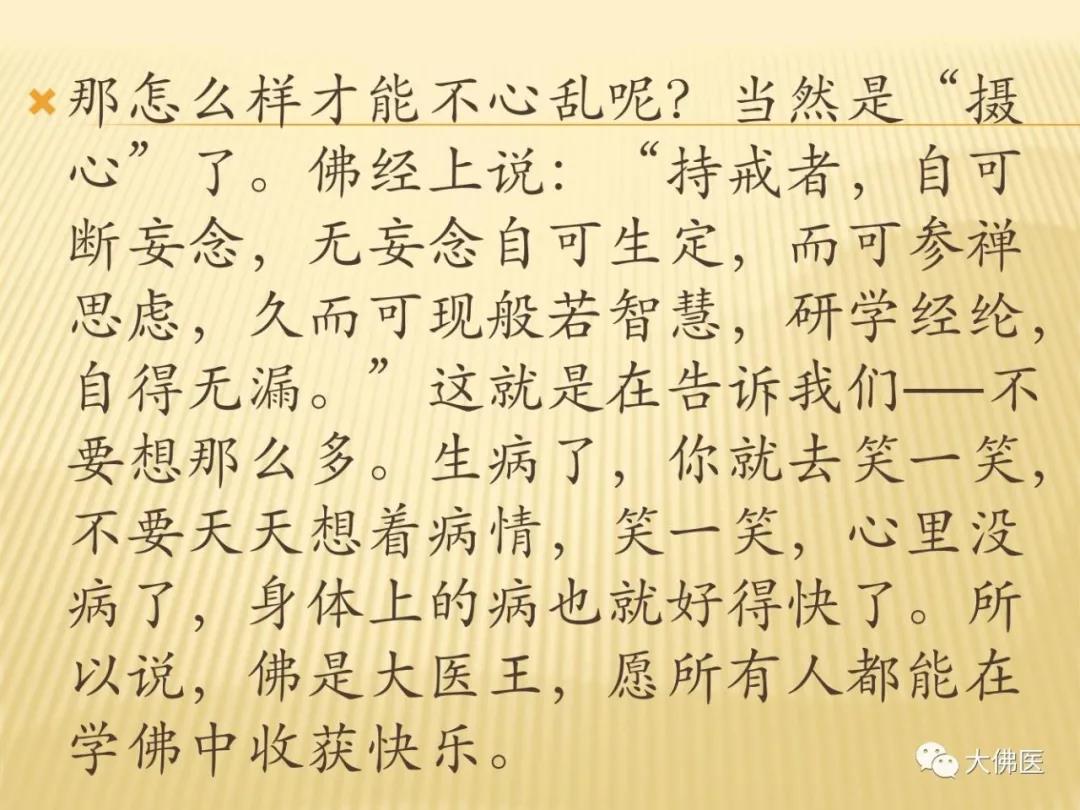 那怎么样才能不心乱呢？当然是“摄
心”了。佛经上说：“持戒者，自可
断妄念，无妄念自可生定，而可参禅
思虑，久而可现般若智慧，研学经纶，
自得无漏。”这就是在告诉我们——不
要想那么多。生病了，你就去笑一笑，
不要天天想着病情，笑一笑，心里没
病了，身体上的病也就好得快了。所
以说，佛是大医王，愿所有人都能在
学佛中收获快乐。
大佛医